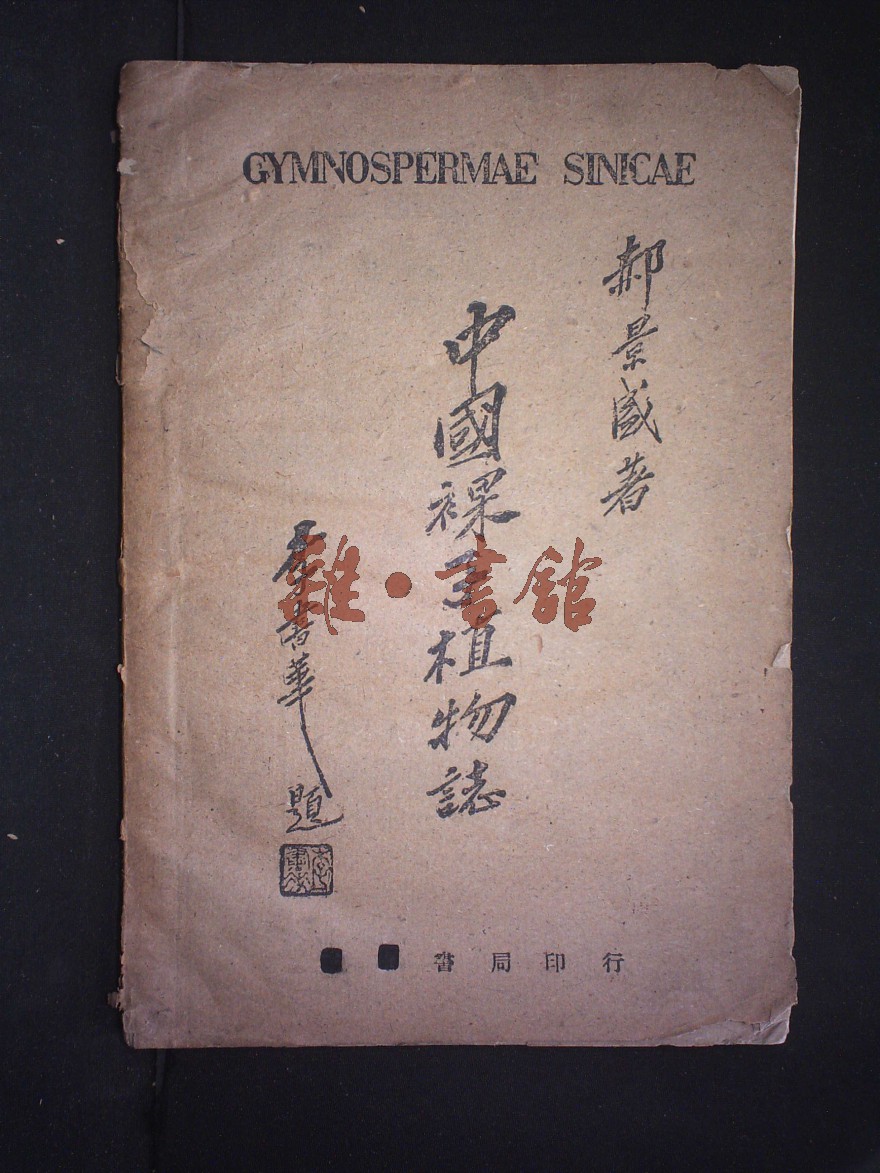 GYMNOSPERMAE SINICAE
郝景盛著
中國裸子植物誌
李書華題
李書華
雜·書館
書局印行